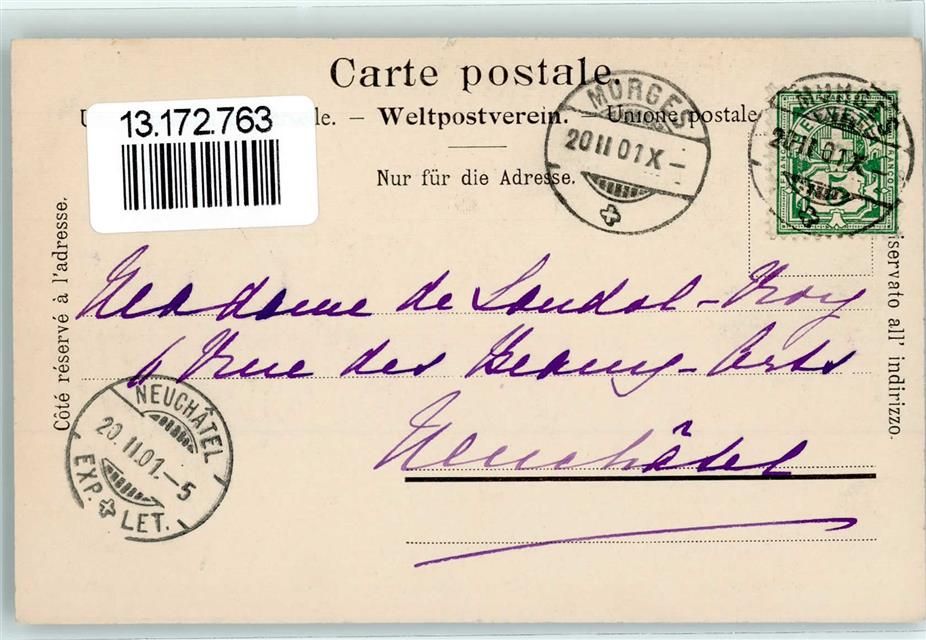 Carte postale.
U le. – Weltpostverein. – Unione postale
Nur für die Adresse.
13.172.763
MORGES
20 II 01 X –
MORGES
20 II 01 X –
HELVETIA
FRANCO
Côté réservé à l'adresse.
iservato all' indirizzo.
Madame de Sandol-Roy
6 rue des Beaux-Arts
Neuchâtel
NEUCHÂTEL
20. II. 01. – 5
EXP. LET.